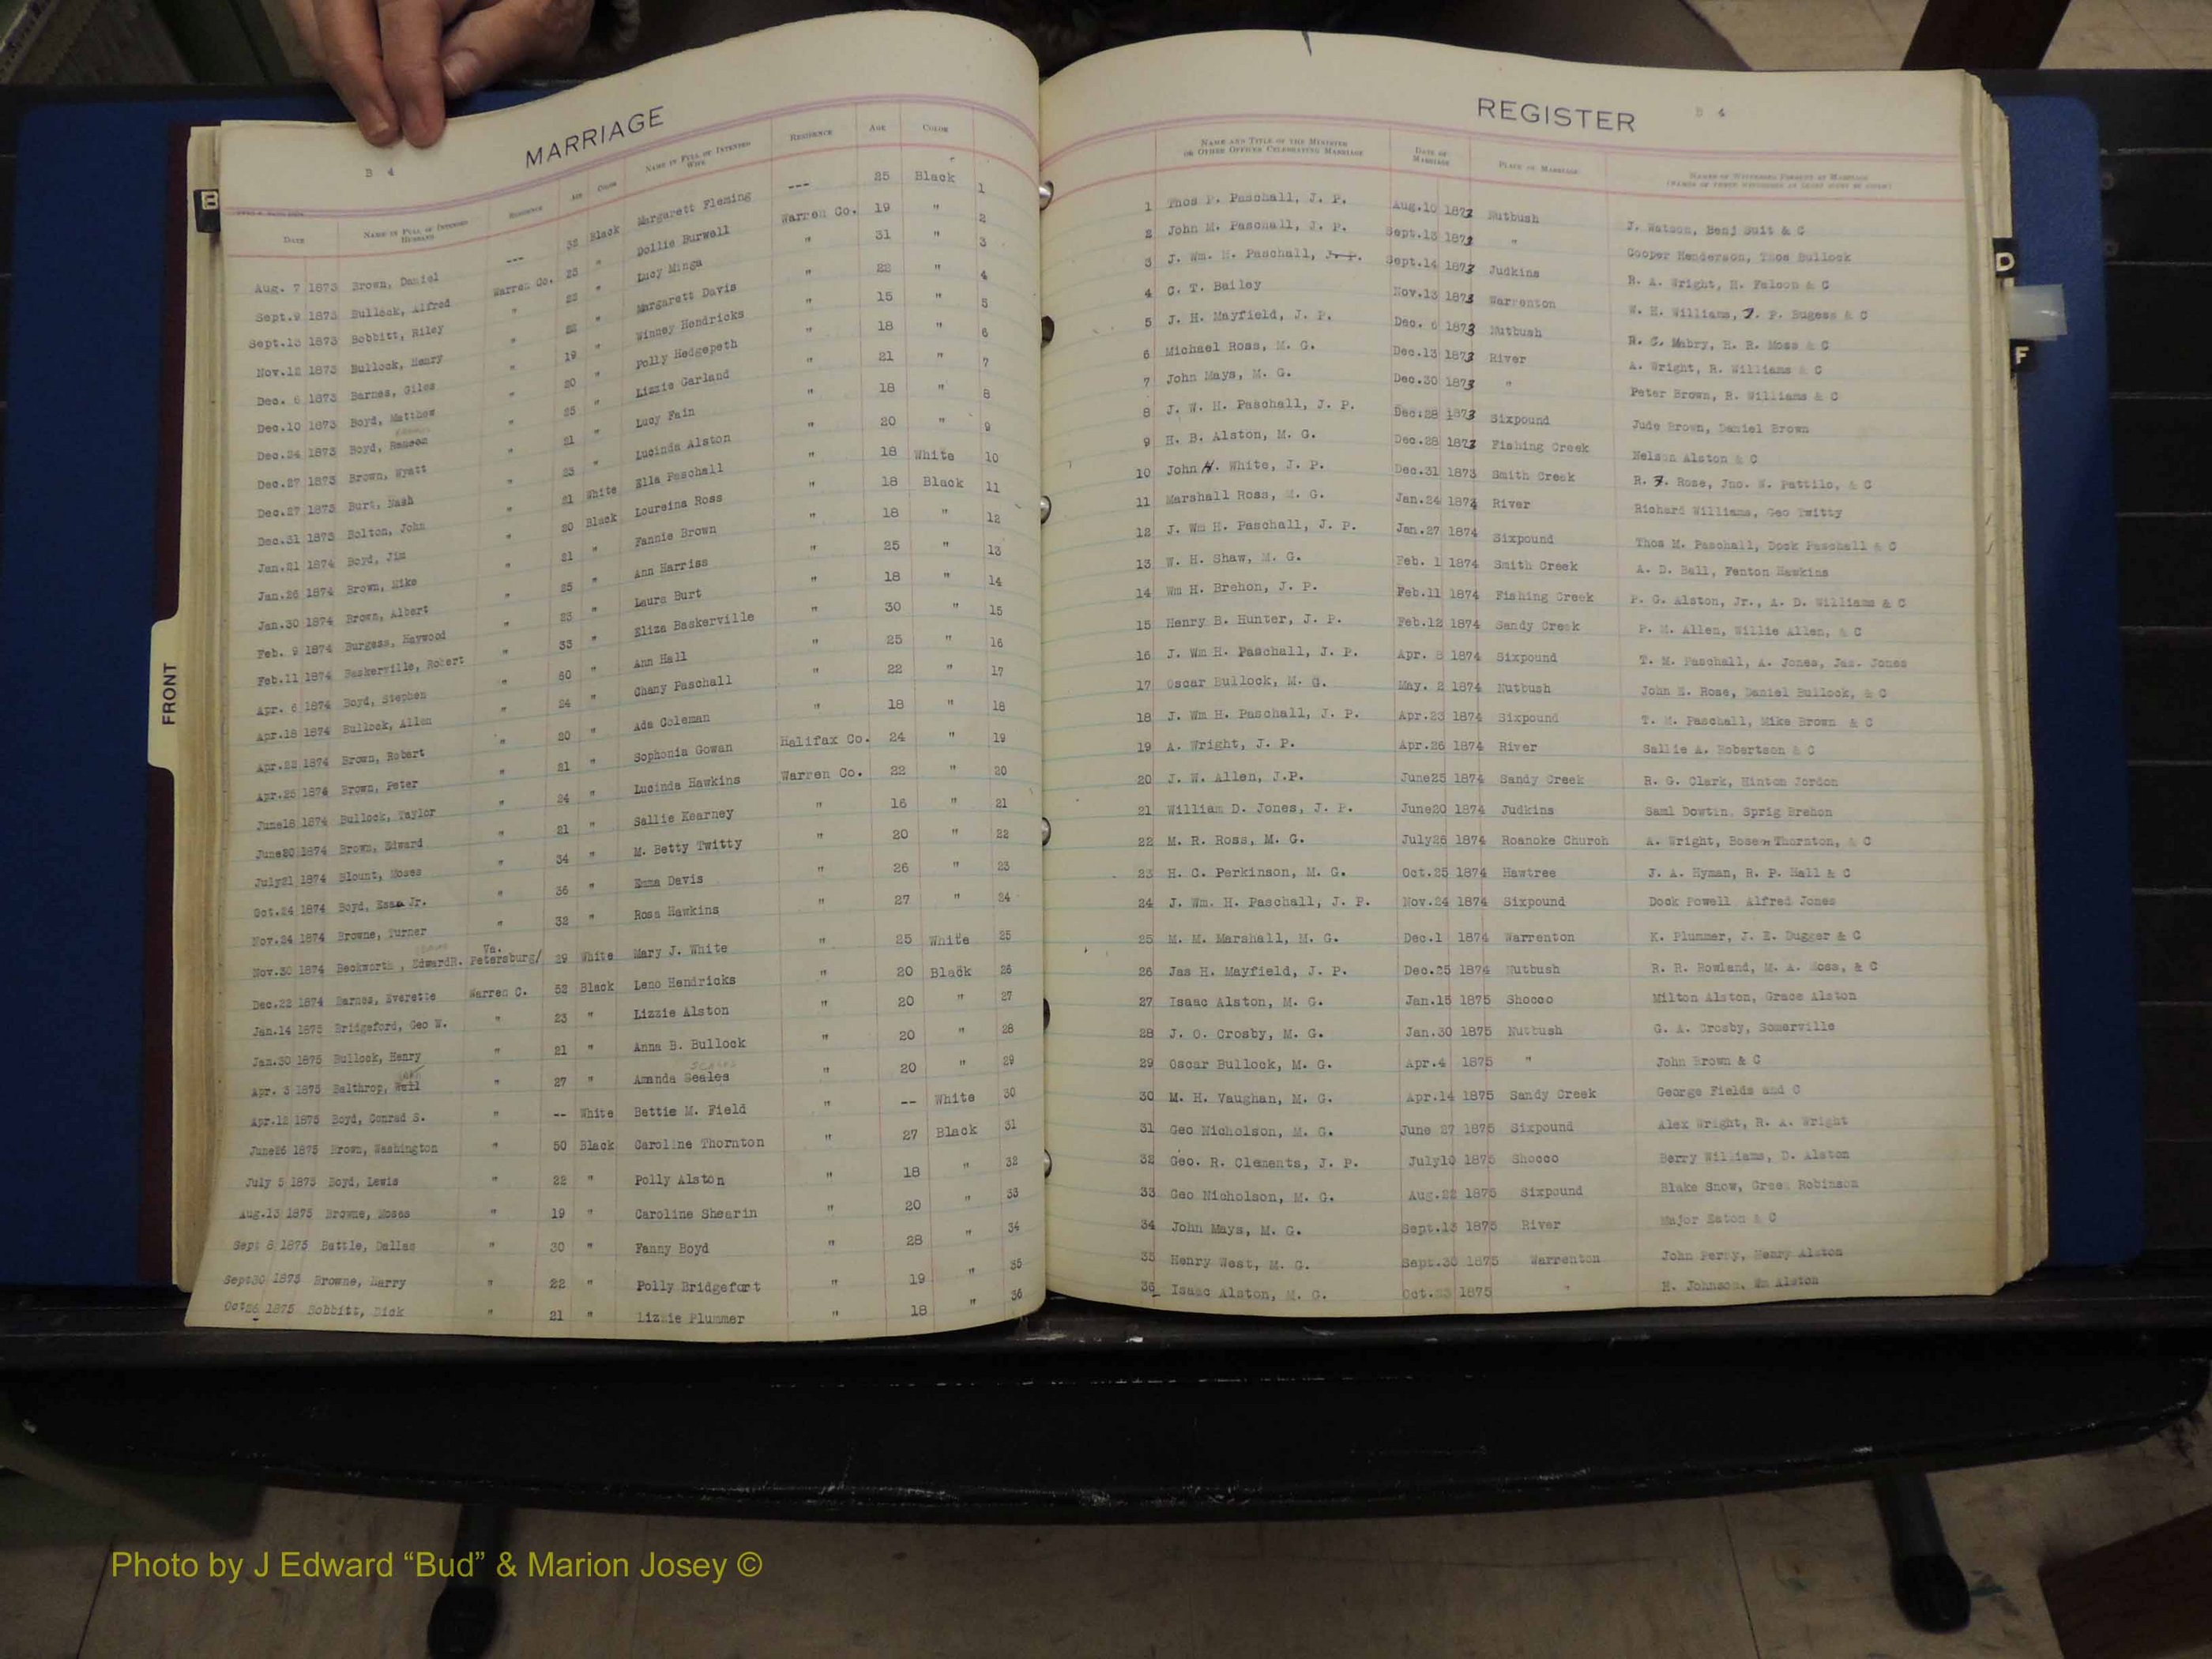 B
MARRIAGE
B 4
DATE NAME IN FULL OF INTENDED HUSBAND RESIDENCE AGE COLOR NAME IN FULL OF INTENDED WIFE RESIDENCE AGE COLOR
Aug. 7 1873 Brown, Daniel --- 32 Black Margarett Fleming --- 25 Black 1
Sept.9 1873 Bullock, Alfred Warren Co. 23 " Dollie Burwell Warren Co. 19 " 2
Sept.13 1873 Bobbitt, Riley " 22 " Lucy Minga " 31 " 3
Nov.12 1873 Bullock, Henry " 22 " Margarett Davis " 22 " 4
Dec. 6 1873 Barnes, Giles " 19 " Winney Hendricks " 15 " 5
Dec.10 1873 Boyd, Matthew " 20 " Polly Hedgepeth " 18 " 6
Dec.24 1873 Boyd, Ransom " 25 " Lizzie Garland " 21 " 7
Dec.27 1873 Brown, Wyatt " 21 " Lucy Fain " 18 " 8
Dec.27 1873 Burt, Nash " 23 " Lucinda Alston " 20 " 9
Dec.31 1873 Bolton, John " 21 White Ella Paschall " 18 White 10
Jan.21 1874 Boyd, Jim " 20 Black Loureina Ross " 18 Black 11
Jan.26 1874 Brown, Mike " 21 " Fannie Brown " 18 " 12
Jan.30 1874 Brown, Albert " 25 " Ann Harriss " 25 " 13
Feb. 9 1874 Burgess, Haywood " 23 " Laura Burt " 18 " 14
Feb.11 1874 Baskerville, Robert " 33 " Eliza Baskerville " 30 " 15
Apr. 6 1874 Boyd, Stephen " 50 " Ann Hall " 25 " 16
Apr.18 1874 Bullock, Allen " 24 " Chany Paschall " 22 " 17
Apr.22 1874 Brown, Robert " 20 " Ada Coleman " 18 " 18
Apr.25 1874 Brown, Peter " 21 " Sophonia Gowan Halifax Co. 24 " 19
June18 1874 Bullock, Taylor " 24 " Lucinda Hawkins Warren Co. 22 " 20
June20 1874 Brown, Edward " 21 " Sallie Kearney " 16 " 21
July21 1874 Blount, Moses " 34 " M. Betty Twitty " 20 " 22
Oct.24 1874 Boyd, Esaa Jr. " 36 " Emma Davis " 26 " 23
Nov.24 1874 Browne, Turner " 32 " Rosa Hawkins " 27 " 24
Nov.30 1874 Beckworth , EdwardR. Va. Petersburg/ 29 White Mary J. White " 25 White 25
Dec.22 1874 Barnes, Everette Warren C. 52 Black Leno Hendricks " 20 Black 26
Jan.14 1875 Bridgeford, Geo W. " 23 " Lizzie Alston " 20 " 27
Jan.30 1875 Bullock, Henry " 21 " Anna B. Bullock " 20 " 28
Apr. 3 1875 Balthrop, " 27 " Amanda Seales " 20 " 29
Apr.12 1875 Boyd, Conrad S. " -- White Bettie M. Field " -- White 30
June26 1875 Brown, Washington " 50 Black Caroline Thornton " 27 Black 31
July 5 1875 Boyd, Lewis " 22 " Polly Alston " 18 " 32
Aug.13 1875 Browne, Moses " 19 " Caroline Shearin " 20 " 33
Sept 8 1875 Battle, Dallas " 30 " Fanny Boyd " 28 " 34
Sept30 1875 Browne, Harry " 22 " Polly Bridgefort " 19 " 35
Oct26 1875 Bobbitt, Dick " 21 " Lizzie Plummer " 18 " 36
REGISTER
B 4
NAME AND TITLE OF THE MINISTER OR OTHER OFFICER CELEBRATING MARRIAGE DATE OF MARRIAGE PLACE OF MARRIAGE NAMES OF WITNESSES PRESENT AT MARRIAGE
1 Thos P. Paschall, J. P. Aug.10 1873 Nutbush J. Watson, Benj Suit & C
2 John M. Paschall, J. P. Sept.13 1873 " Cooper Henderson, Thos Bullock
3 J. Wm. H. Paschall, J. P. Sept.14 1873 Judkins R. A. Wright, H. Falcon & C
4 C. T. Bailey Nov.13 1873 Warrenton W. H. Williams, J. P. Bugess & C
5 J. H. Mayfield, J. P. Dec. 6 1873 Nutbush R. G. Mabry, R. R. Moss & C
6 Michael Ross, M. G. Dec.13 1873 River A. Wright, R. Williams & C
7 John Mays, M. G. Dec.30 1873 " Peter Brown, R. Williams & C
8 J. W. H. Paschall, J. P. Dec.28 1873 Sixpound Jude Brown, Daniel Brown
9 H. B. Alston, M. G. Dec.28 1873 Fishing Creek Nelson Alston & C
10 John H. White, J. P. Dec.31 1873 Smith Creek R. J. Rose, Jno. W. Pattilo, & C
11 Marshall Ross, M. G. Jan.24 1874 River Richard Williams, Geo Twitty
12 J. Wm H. Paschall, J. P. Jan.27 1874 Sixpound Thos M. Paschall, Dock Paschall & C
13 W. H. Shaw, M. G. Feb. 1 1874 Smith Creek A. D. Ball, Fenton Hawkins
14 Wm H. Brehon, J. P. Feb.11 1874 Fishing Creek P. G. Alston, Jr., A. D. Williams & C
15 Henry B. Hunter, J. P. Feb.12 1874 Sandy Creek P. M. Allen, Willie Allen, & C
16 J. Wm H. Paschall, J. P. Apr. 8 1874 Sixpound T. M. Paschall, A. Jones, Jas. Jones
17 Oscar Bullock, M. G. May. 2 1874 Nutbush John E. Rose, Daniel Bullock, & C
18 J. Wm H. Paschall, J. P. Apr.23 1874 Sixpound T. M. Paschall, Mike Brown & C
19 A. Wright, J. P. Apr.26 1874 River Sallie A. Robertson & C
20 J. W. Allen, J.P. June25 1874 Sandy Creek R. G. Clark, Hinton Jordon
21 William D. Jones, J. P. June20 1874 Judkins Saml Dowtin, Sprig Brehon
22 M. R. Ross, M. G. July26 1874 Roanoke Church A. Wright, Boseon Thornton, & C
23 H. C. Perkinson, M. G. Oct.25 1874 Hawtree J. A. Hyman, R. P. Hall & C
24 J. Wm. H. Paschall, J. P. Nov.24 1874 Sixpound Dock Powell Alfred Jones
25 M. M. Marshall, M. G. Dec.1 1874 Warrenton K. Plummer, J. E. Dugger & C
26 Jas H. Mayfield, J. P. Dec.25 1874 Nutbush R. R. Rowland, M. A. Moss, & C
27 Isaac Alston, M. G. Jan.15 1875 Shocco Milton Alston, Grace Alston
28 J. O. Crosby, M. G. Jan.30 1875 Nutbush G. A. Crosby, Somerville
29 Oscar Bullock, M. G. Apr.4 1875 " John Brown & C
30 M. H. Vaughan, M. G. Apr.14 1875 Sandy Creek George Fields and C
31 Geo Nicholson, M. G. June 27 1875 Sixpound Alex Wright, R. A. Wright
32 Geo. R. Clements, J. P. July10 1875 Shocco Berry Williams, D. Alston
33 Geo Nicholson, M. G. Aug.22 1875 Sixpound Blake Snow, Green Robinson
34 John Mays, M. G. Sept.13 1875 River Major Eaton & C
35 Henry West, M. G. Sept.30 1875 Warrenton John Perry, Henry Alston
36 Isaac Alston, M. G. Oct. 1875 " H. Johnson, Wm Alston
D
F
FRONT
Photo by J Edward “Bud” & Marion Josey ©